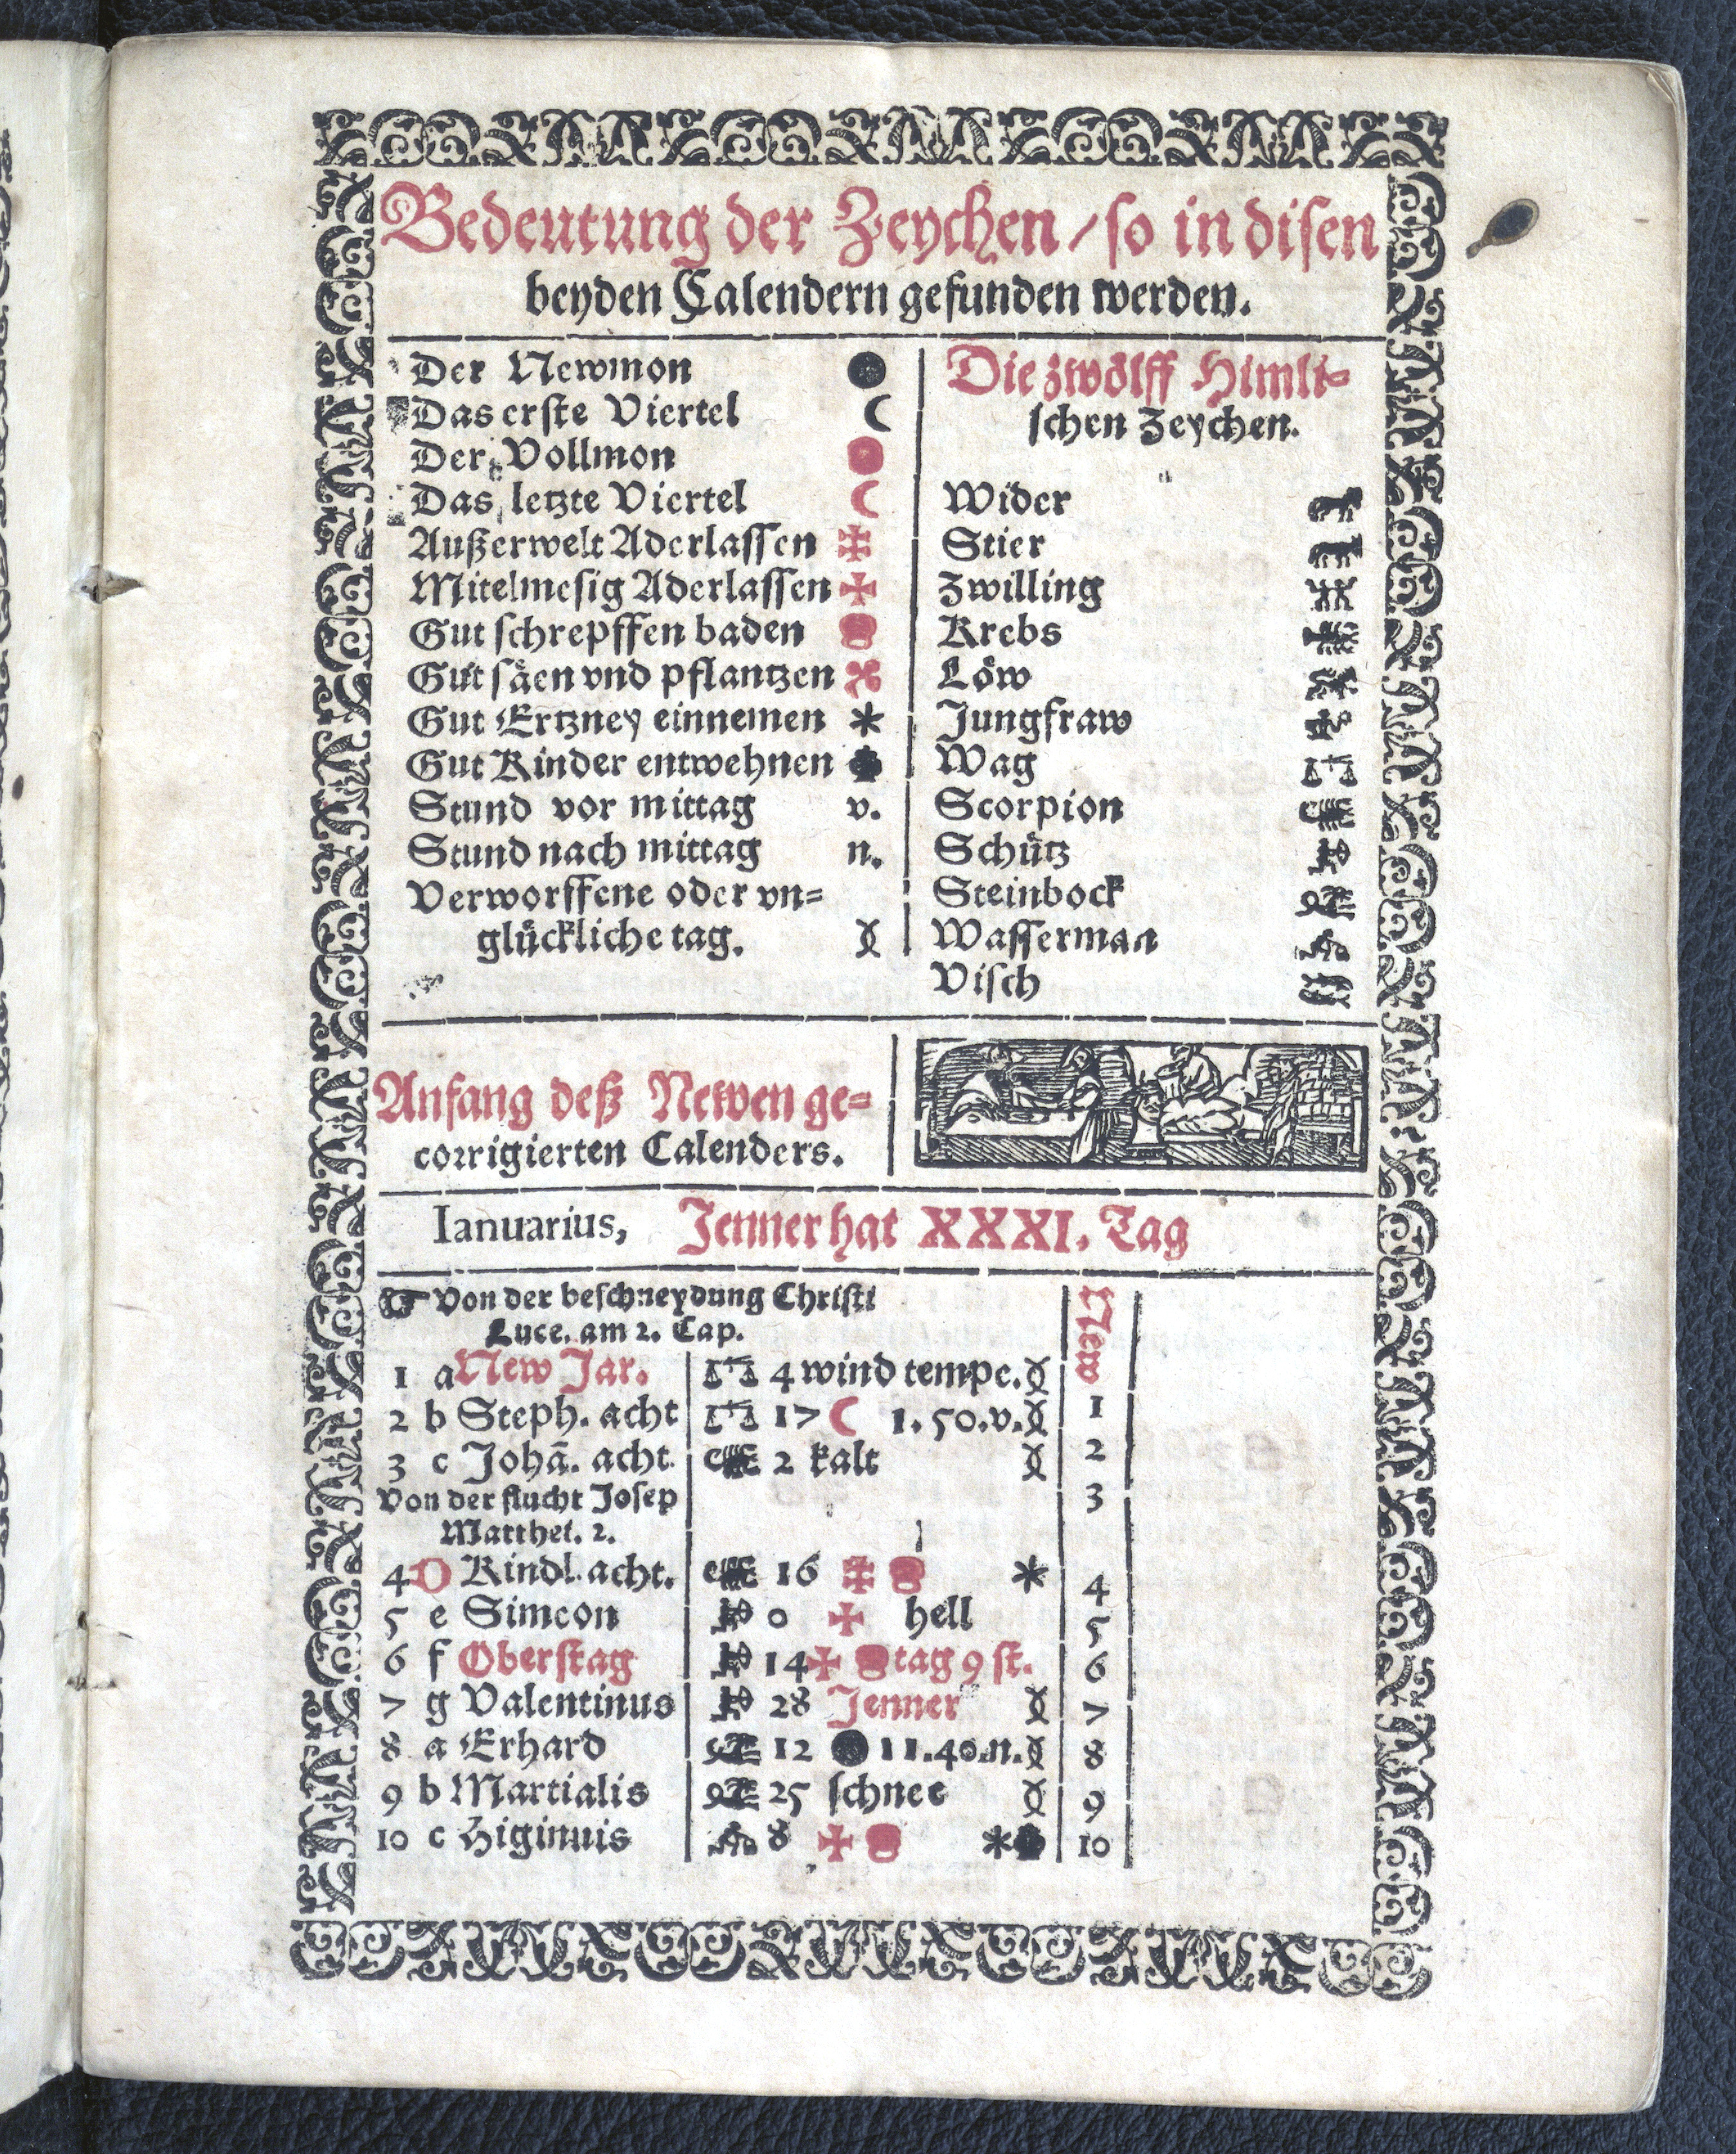 Bedeutung der Zeychen / so in disen
beyden Calendern gefunden werden.
Der Newmon
Das erste Viertel
Der Vollmon
Das letzte Viertel
Außerwelt Aderlassen
Mitelmesig Aderlassen
Gut schrepffen baden
Gut säen vnd pflantzen
Gut Ertzney einnemen
Gut Kinder entwehnen
Stund vor mittag v.
Stund nach mittag n.
Verworffene oder vn=
glückliche tag.
Die zwölff Himli=
schen Zeychen.
Wider
Stier
Zwilling
Krebs
Löw
Jungfraw
Wag
Scorpion
Schütz
Steinbock
Wasserman
Visch
Anfang deß Newen ge=
corrigierten Calenders.
Ianuarius, Jenner hat XXXI. Tag
Von der beschneydung Christi
Luce. am 2. Cap.
New
1 a New Jar. 4 wind tempe.
2 b Steph. acht 17 1.50.v. 1
3 c Johã. acht 2 kalt 2
Von der flucht Josep 3
Matthei. 2.
4 D Kindl. acht. 16 4
5 e Simeon 0 hell 5
6 f Oberstag 14 tag 9 st. 6
7 g Valentinus 28 Jenner 7
8 a Erhard 12 11.40.n. 8
9 b Martialis 25 schnee 9
10 c Higinuis 8 10